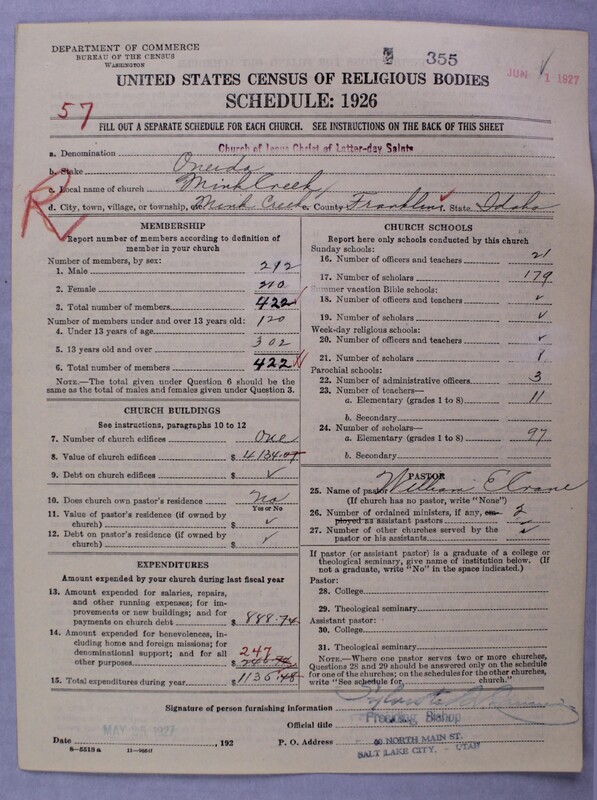 DEPARTMENT OF COMMERCE
BUREAU OF THE CENSUS
WASHINGTON
355
JUN 1 1927
UNITED STATES CENSUS OF RELIGIOUS BODIES
SCHEDULE: 1926
57
FILL OUT A SEPARATE SCHEDULE FOR EACH CHURCH. SEE INSTRUCTIONS ON THE BACK OF THIS SHEET
a. Denomination Church of Jesus Christ of Latter-day Saints
b. Stake Oneida
c. Local name of church Mink Creek
d. City, town, village, or township, or Mink Creek e. County Franklin f. State Idaho
R
MEMBERSHIP
Report number of members according to definition of
member in your church
Number of members, by sex:
1. Male 212
2. Female 210
3. Total number of members 422
Number of members under and over 13 years old:
4. Under 13 years of age 120
5. 13 years old and over 302
6. Total number of members 422
NOTE.—The total given under Question 6 should be
the same as the total of males and females given under Question 3.
CHURCH BUILDINGS
See instructions, paragraphs 10 to 12
7. Number of church edifices One
8. Value of church edifices $ 4134.07
9. Debt on church edifices $ ✓
10. Does church own pastor's residence No
Yes or No
11. Value of pastor's residence (if owned by
church) $ ✓
12. Debt on pastor's residence (if owned by
church) $ ✓
EXPENDITURES
Amount expended by your church during last fiscal year
13. Amount expended for salaries, repairs,
and other running expenses; for im-
provements or new buildings; and for
payments on church debt $ 888.74
14. Amount expended for benevolences, in-
cluding home and foreign missions; for
denominational support; and for all
other purposes $ 247
246.74
15. Total expenditures during year $ 1135.48
CHURCH SCHOOLS
Report here only schools conducted by this church
Sunday schools:
16. Number of officers and teachers 21
17. Number of scholars 179
Summer vacation Bible schools:
18. Number of officers and teachers ✓
19. Number of scholars ✓
Week-day religious schools:
20. Number of officers and teachers ✓
21. Number of scholars
Parochial schools:
22. Number of administrative officers 3
23. Number of teachers—
a. Elementary (grades 1 to 8) 11
b. Secondary
24. Number of scholars—
a. Elementary (grades 1 to 8) 97
b. Secondary
PASTOR
25. Name of pastor William E Crane
(If church has no pastor, write "None")
26. Number of ordained ministers, if any, em-
ployed as assistant pastors 2
27. Number of other churches served by the
pastor or his assistants ✓
If pastor (or assistant pastor) is a graduate of a college or
theological seminary, give name of institution below. (If
not a graduate, write "No" in the space indicated.)
Pastor:
28. College
29. Theological seminary
Assistant pastor:
30. College
31. Theological seminary
NOTE.—Where one pastor serves two or more churches,
Questions 28 and 29 should be answered only on the schedule
for one of the churches; on the schedules for the other churches,
write "See schedule for church."
Signature of person furnishing information
Official title Presiding Bishop
Date MAY 25 1927, 192 P. O. Address 40 NORTH MAIN ST.
SALT LAKE CITY, - UTAH
8—5518a